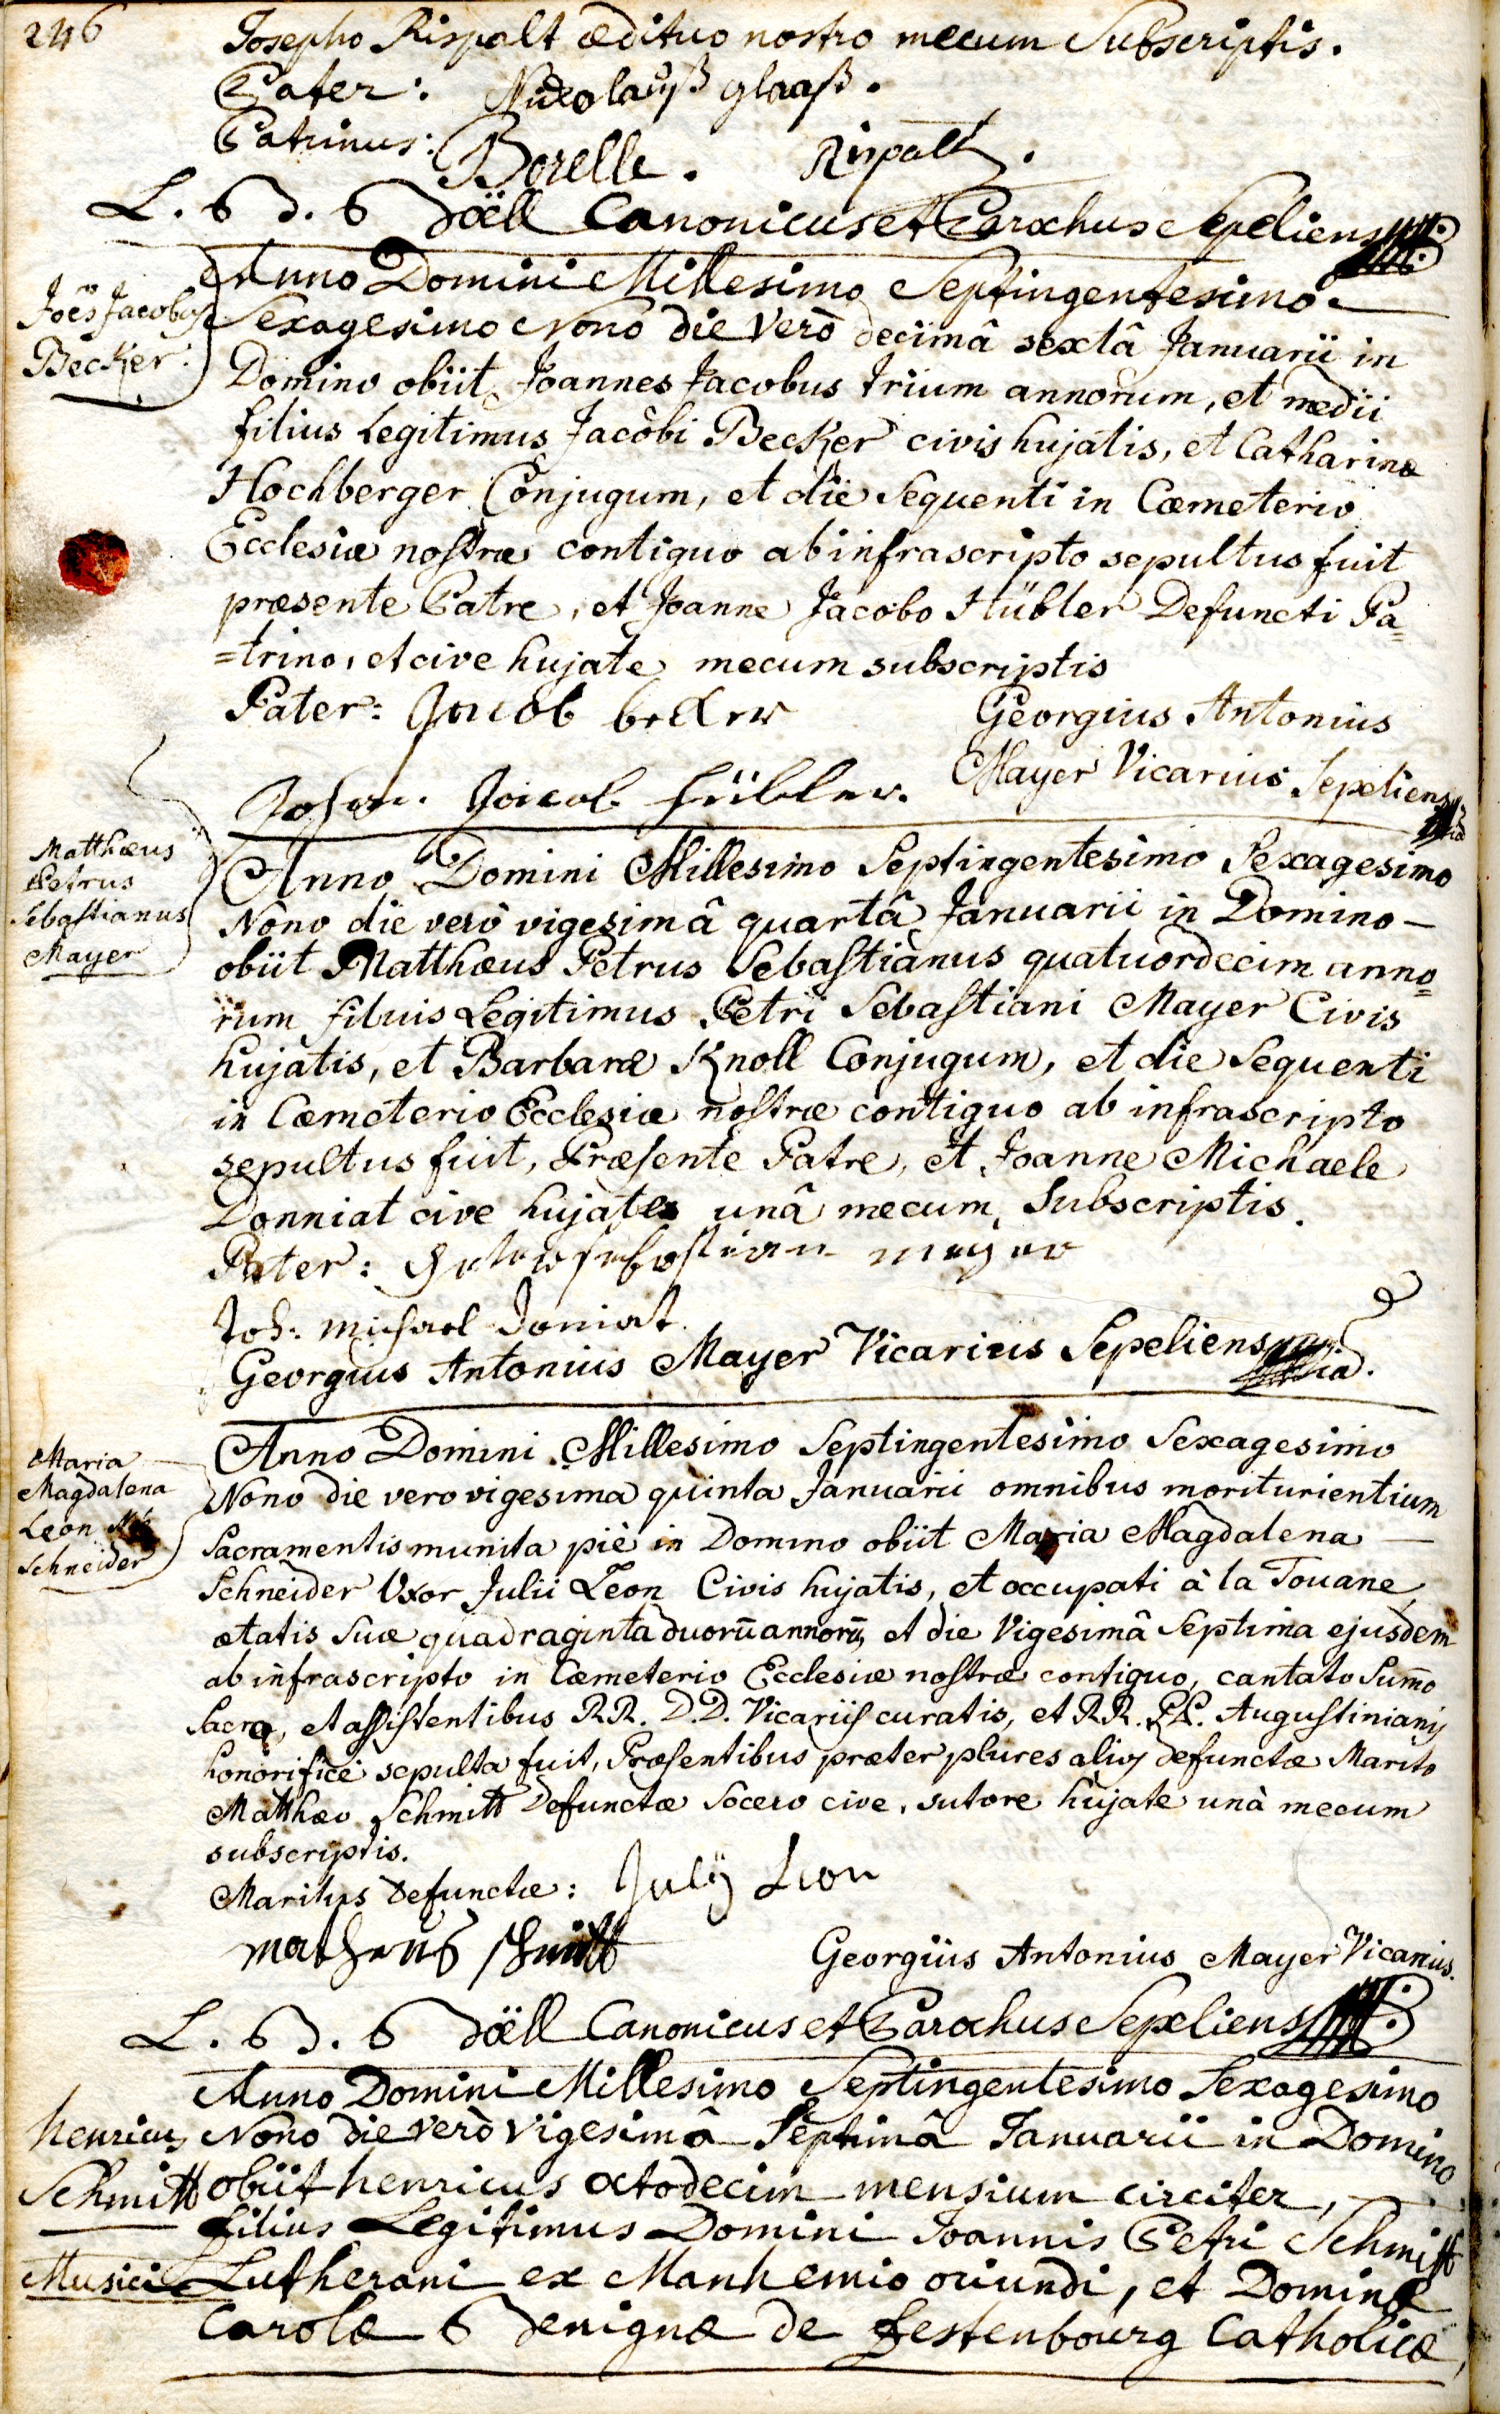 246
Josepho Rispalt ædituo nostro mecum Subscriptis.
Pater: Nickolauß glaaß.
Patrinus: Borelle. Rispalt.
L. B. Doëll Canonicus et Parochus Sepeliens
Joēs Jacobus
Becker.
Anno Domini Millesimo Septingentesimo
Sexagesimo Nono die Verò decimâ sextâ Januarii in
Domino obiit Joannes Jacobus trium annorum, et medii
filius Legitimus Jacobi Becker civis hujatis, et Catharinæ
Hochberger Conjugum, et die Sequenti in Cæmeterio
Ecclesiæ nostræ contiguo ab infrascripto sepultus fuit
præsente Patre, et Joanne Jacobo Hübler Defuncti Pa=
=trino, et cive hujate mecum subscriptis
Pater: Jacob becker
Georgius Antonius
Mayer Vicarius Sepeliens
Johan. Jacob hübler.
Matthæus
Petrus
Sebastianus
Mayer
Anno Domini Millesimo Septingentesimo Sexagesimo
Nono die verò vigesimâ quartâ Januarii in Domino
obiit Matthæus Petrus Sebastianus quatuordecim anno=
rum filuis Legitimus Petri Sebastiani Mayer Civis
hujatis, et Barbaræ Knoll Conjugum, et die Sequenti
in Cæmeterio Ecclesiæ nostræ contiguo ab infrascripto
sepultus fuit, Præsente Patre, et Joanne Michaele
Donniat cive hujate unâ mecum Subscriptis.
Pater: Peter sebastian mayer
Joh: michael Doniat
Georgius Antonius Mayer Vicarius Sepeliens
Maria
Magdalena
Leon
Schneider
Anno Domini Millesimo Septingentesimo Sexagesimo
Nono die vero vigesima quinta Januarii omnibus moriturientium
Sacramentis munita piè in Domino obiit Maria Magdalena
Schneider Uxor Julii Leon Civis hujatis, et occupati à la Touane
ætatis Suæ quadraginta duorū annorū, et die Vigesimâ Septima ejusdem
ab infrascripto in Cæmeterio Ecclesiæ nostræ contiguo, cantato Sum̄o
Sacro, et assistentibus R.R. D.D. Vicariis curatis, et R.R. P.P. Augustinianis
honorificè sepulta fuit, Præsentibus præter plures alios defunctæ Marito
Matthæo Schmitt Defunctæ Socero cive, sutore hujate unà mecum
subscriptis.
Maritus Defunctæ: Julÿ Lion
matheus schmitt
Georgius Antonius Mayer Vicarius.
L. B. Doëll Canonicus et Parochus Sepeliens
henricus
Schmitt
Musici
Anno Domini Millesimo Septingentesimo Sexagesimo
Nono die verò vigesimâ Septimâ Januarii in Domino
obiit henricus octodecim mensium circiter,
filius Legitimus Domini Joannis Petri Schmitt
Lutherani ex Manhemio oriundi, et Dominæ
Carolæ Benignæ de festenbourg Catholicæ,